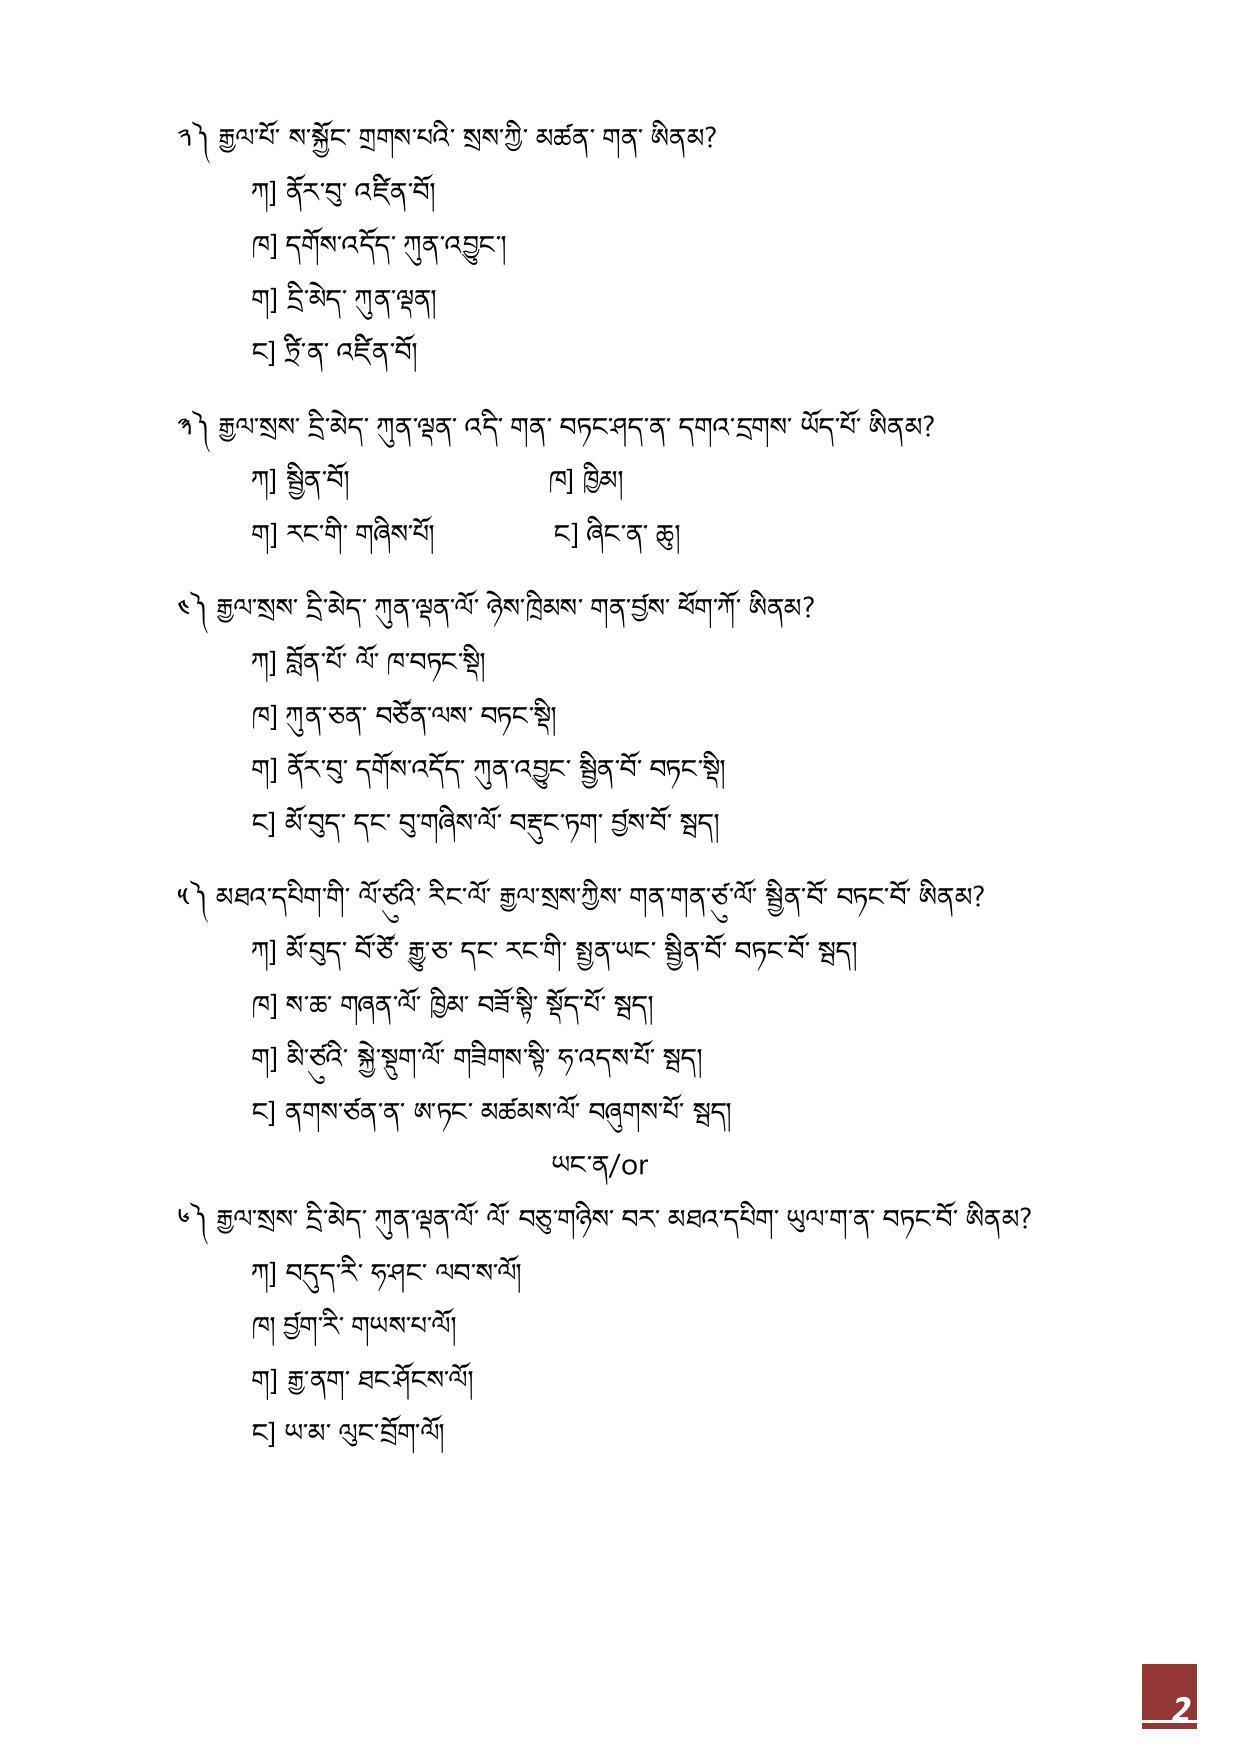 ༢༽ རྒྱལ་པོ་ ས་སྐྱོང་ གྲགས་པའི་ སྲས་ཀྱི་ མཚན་ གན་ ཨིནམ?
ཀ] ནོར་བུ་ འཛིན་བོ།
ཁ] དགོས་འདོད་ ཀུན་འབྱུང་།
ག] དྲི་མེད་ ཀུན་ལྡན།
ང] ཏྲི་ན་ འཛིན་བོ།
༣༽ རྒྱལ་སྲས་ དྲི་མེད་ ཀུན་ལྡན་ འདི་ གན་ བཏང་ཤད་ན་ དགའ་དྲགས་ ཡོད་པོ་ ཨིནམ?
ཀ] སྦྱིན་བོ། ཁ] ཁྱིམ།
ག] རང་གི་ གཞིས་པོ། ང] ཞིང་ན་ ཆུ།
༤༽ རྒྱལ་སྲས་ དྲི་མེད་ ཀུན་ལྡན་ལོ་ ཉེས་ཁྲིམས་ གན་བྱས་ ཕོག་ཀོ་ ཨིནམ?
ཀ] བློན་པོ་ ལོ་ ཁ་བཏང་སྡི།
ཁ] ཀུན་ཅན་ བཙོན་ལས་ བཏང་སྡི།
ག] ནོར་བུ་ དགོས་འདོད་ ཀུན་འབྱུང་ སྦྱིན་བོ་ བཏང་སྡི།
ང] མོ་བུད་ དང་ བུ་གཞིས་ལོ་ བརྡུང་ཏག་ བྱས་བོ་ སྦད།
༥༽ མཐའ་དཔིག་གི་ ལོ་ཙུའི་ རིང་ལོ་ རྒྱལ་སྲས་ཀྱིས་ གན་གན་ཙུ་ལོ་ སྦྱིན་བོ་ བཏང་བོ་ ཨིནམ?
ཀ] མོ་བུད་ བོ་ཙོ་ རྒྱུ་ཅ་ དང་ རང་གི་ སྤྱན་ཡང་ སྦྱིན་བོ་ བཏང་བོ་ སྦད།
ཁ] ས་ཆ་ གཞན་ལོ་ ཁྱིམ་ བཟོ་སྟི་ སྡོད་པོ་ སྦད།
ག] མི་ཙུའི་ སྐྱེ་སྡུག་ལོ་ གཟིགས་སྟི་ ཧ་འདས་པོ་ སྦད།
ང] ནགས་ཙན་ན་ ཨ་ཏང་ མཚམས་ལོ་ བཞུགས་པོ་ སྦད།
ཡང་ན/or
༦༽ རྒྱལ་སྲས་ དྲི་མེད་ ཀུན་ལྡན་ལོ་ ལོ་ བཅུ་གཉིས་ བར་ མཐའ་དཔིག་ ཡུལ་ག་ན་ བཏང་བོ་ ཨིནམ?
ཀ] བདུད་རི་ ཧ་ཤང་ ལབ་ས་ལོ།
ཁ། བྱག་རི་ གཡས་པ་ལོ།
ག] རྒྱ་ནག་ ཐང་ཤོངས་ལོ།
ང] ཡ་མ་ ལུང་བྲོག་ལོ།
2